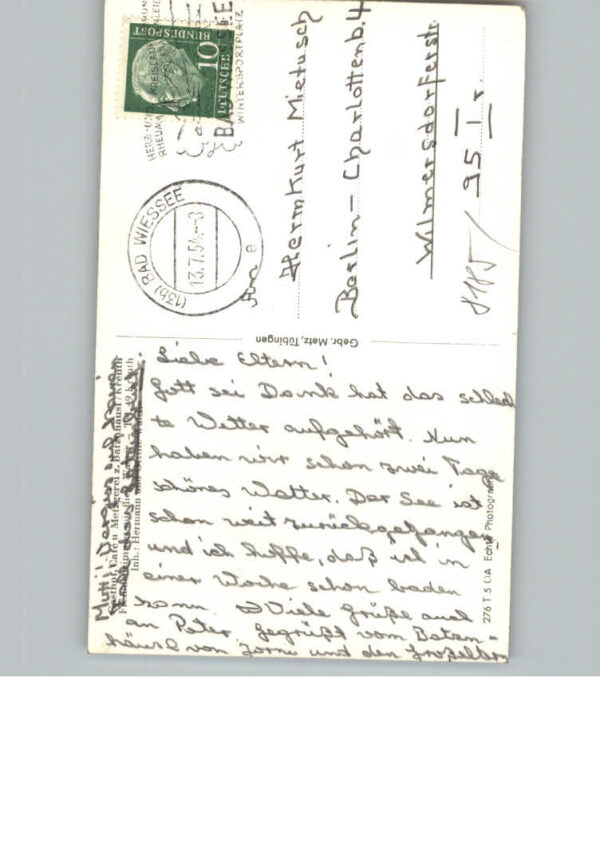 10
DEUTSCHE
BUNDESPOST
BAD WIESSEE
WINTERSPORTPLATZ
HERZ-
RHEUMA
(13b) BAD WIESSEE
13.7.54.-8
An
Herrn Kurt Mietusch
Berlin-Charlottenb. 4
Wilmersdorferstr.
95 I r.
Gebr. Metz, Tübingen
Liebe Eltern!
Gott sei Dank hat das schlech
te Wetter aufgehört. Nun
haben wir schon zwei Tage
schönes Wetter. Der See ist
schon weit zurückgegangen
und ich hoffe, daß ich in
einer Woche schon baden
kann. Viele Grüße auch
an Peter. gegrüßt vom Batzn-
häusl von und den Großeltern
Mutti! Vergiss
Café u. Metzgerei z. Batznhäusl / Kreuth
Inh.: Hermann
276 T 5 UA Echte Photographie